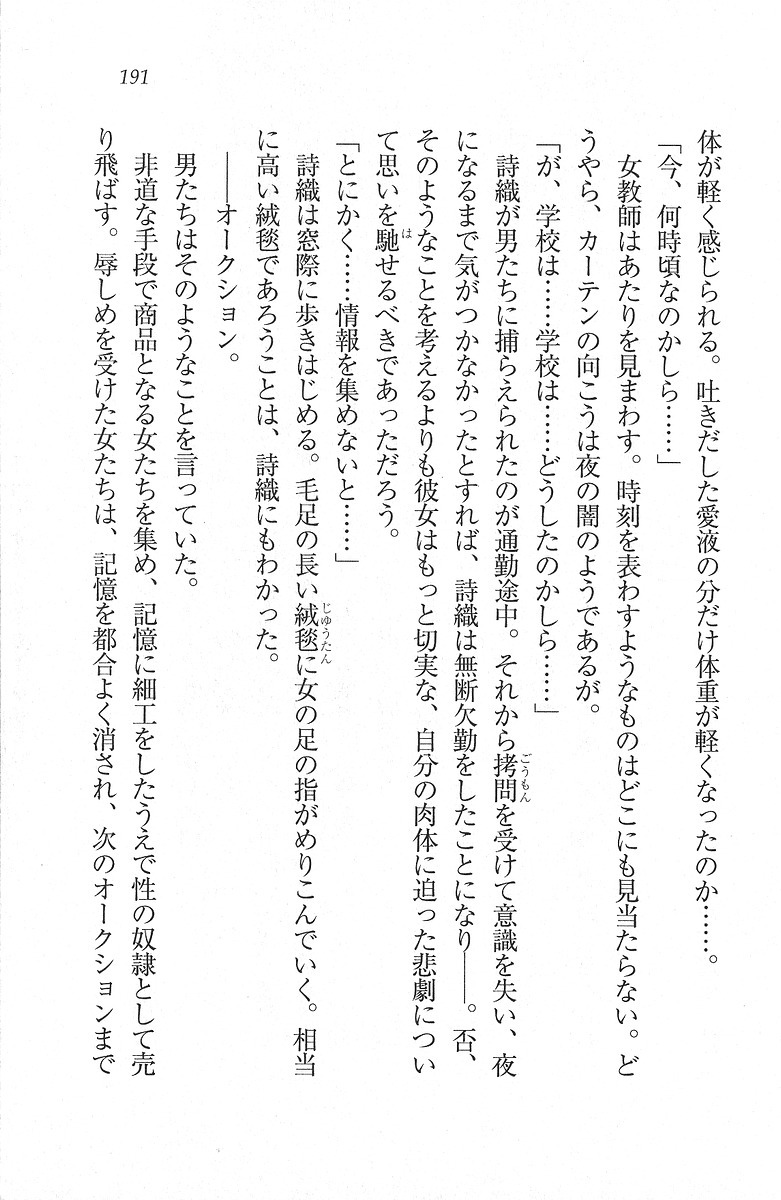 191
体が軽く感じられる。吐きだした愛液の分だけ体重が軽くなったのか……。
「今、何時頃なのかしら……」
女教師はあたりを見まわす。時刻を表わすようなものはどこにも見当たらない。ど
うやら、カーテンの向こうは夜の闇のようであるが。
「が、学校は……学校は……どうしたのかしら……」
詩織が男たちに捕らえられたのが通勤途中。それから拷問を受けて意識を失い、夜
ごうもん
になるまで気がつかなかったとすれば、詩織は無断欠勤をしたことになり――。否、
そのようなことを考えるよりも彼女はもっと切実な、自分の肉体に迫った悲劇につい
て思いを馳せるべきであっただろう。
は
「とにかく……情報を集めないと……」
詩織は窓際に歩きはじめる。毛足の長い絨毯に女の足の指がめりこんでいく。相当
じゅうたん
に高い絨毯であろうことは、詩織にもわかった。
――オークション。
男たちはそのようなことを言っていた。
非道な手段で商品となる女たちを集め、記憶に細工をしたうえで性の奴隷として売
り飛ばす。辱しめを受けた女たちは、記憶を都合よく消され、次のオークションまで